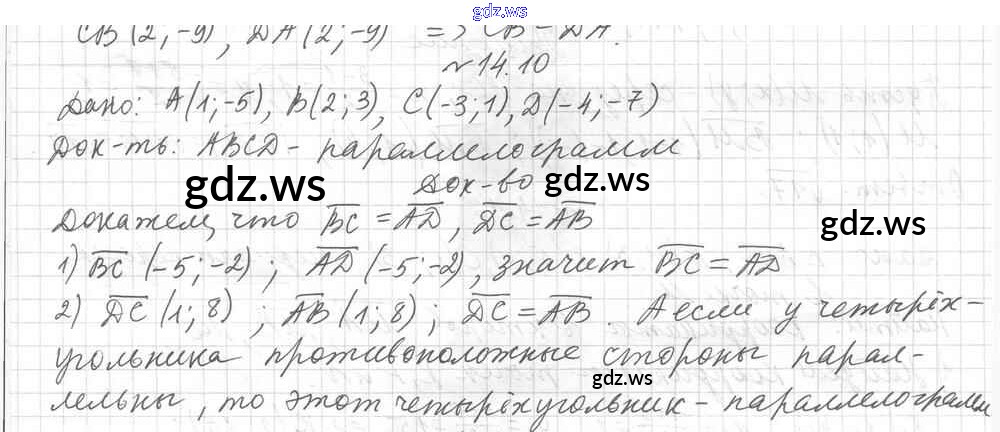 gdz.ws
CB (2; -9), DA (2; -9) => CB = DA.
№ 14.10
Дано: A(1; -5), B(2; 3), C(-3; 1), D(-4; -7)
Док-ть: ABCD - параллелограмм
Док-во
gdz.ws
gdz.ws
Докажем, что BC = AD, DC = AB
gdz.ws
1) BC (-5; -2); AD (-5; -2), значит BC = AD
2) DC (1; 8); AB (1; 8); DC = AB. А если у четырёх-
угольника противоположные стороны парал-
gdz.ws
лельны, то этот четырёхугольник - параллелограмм